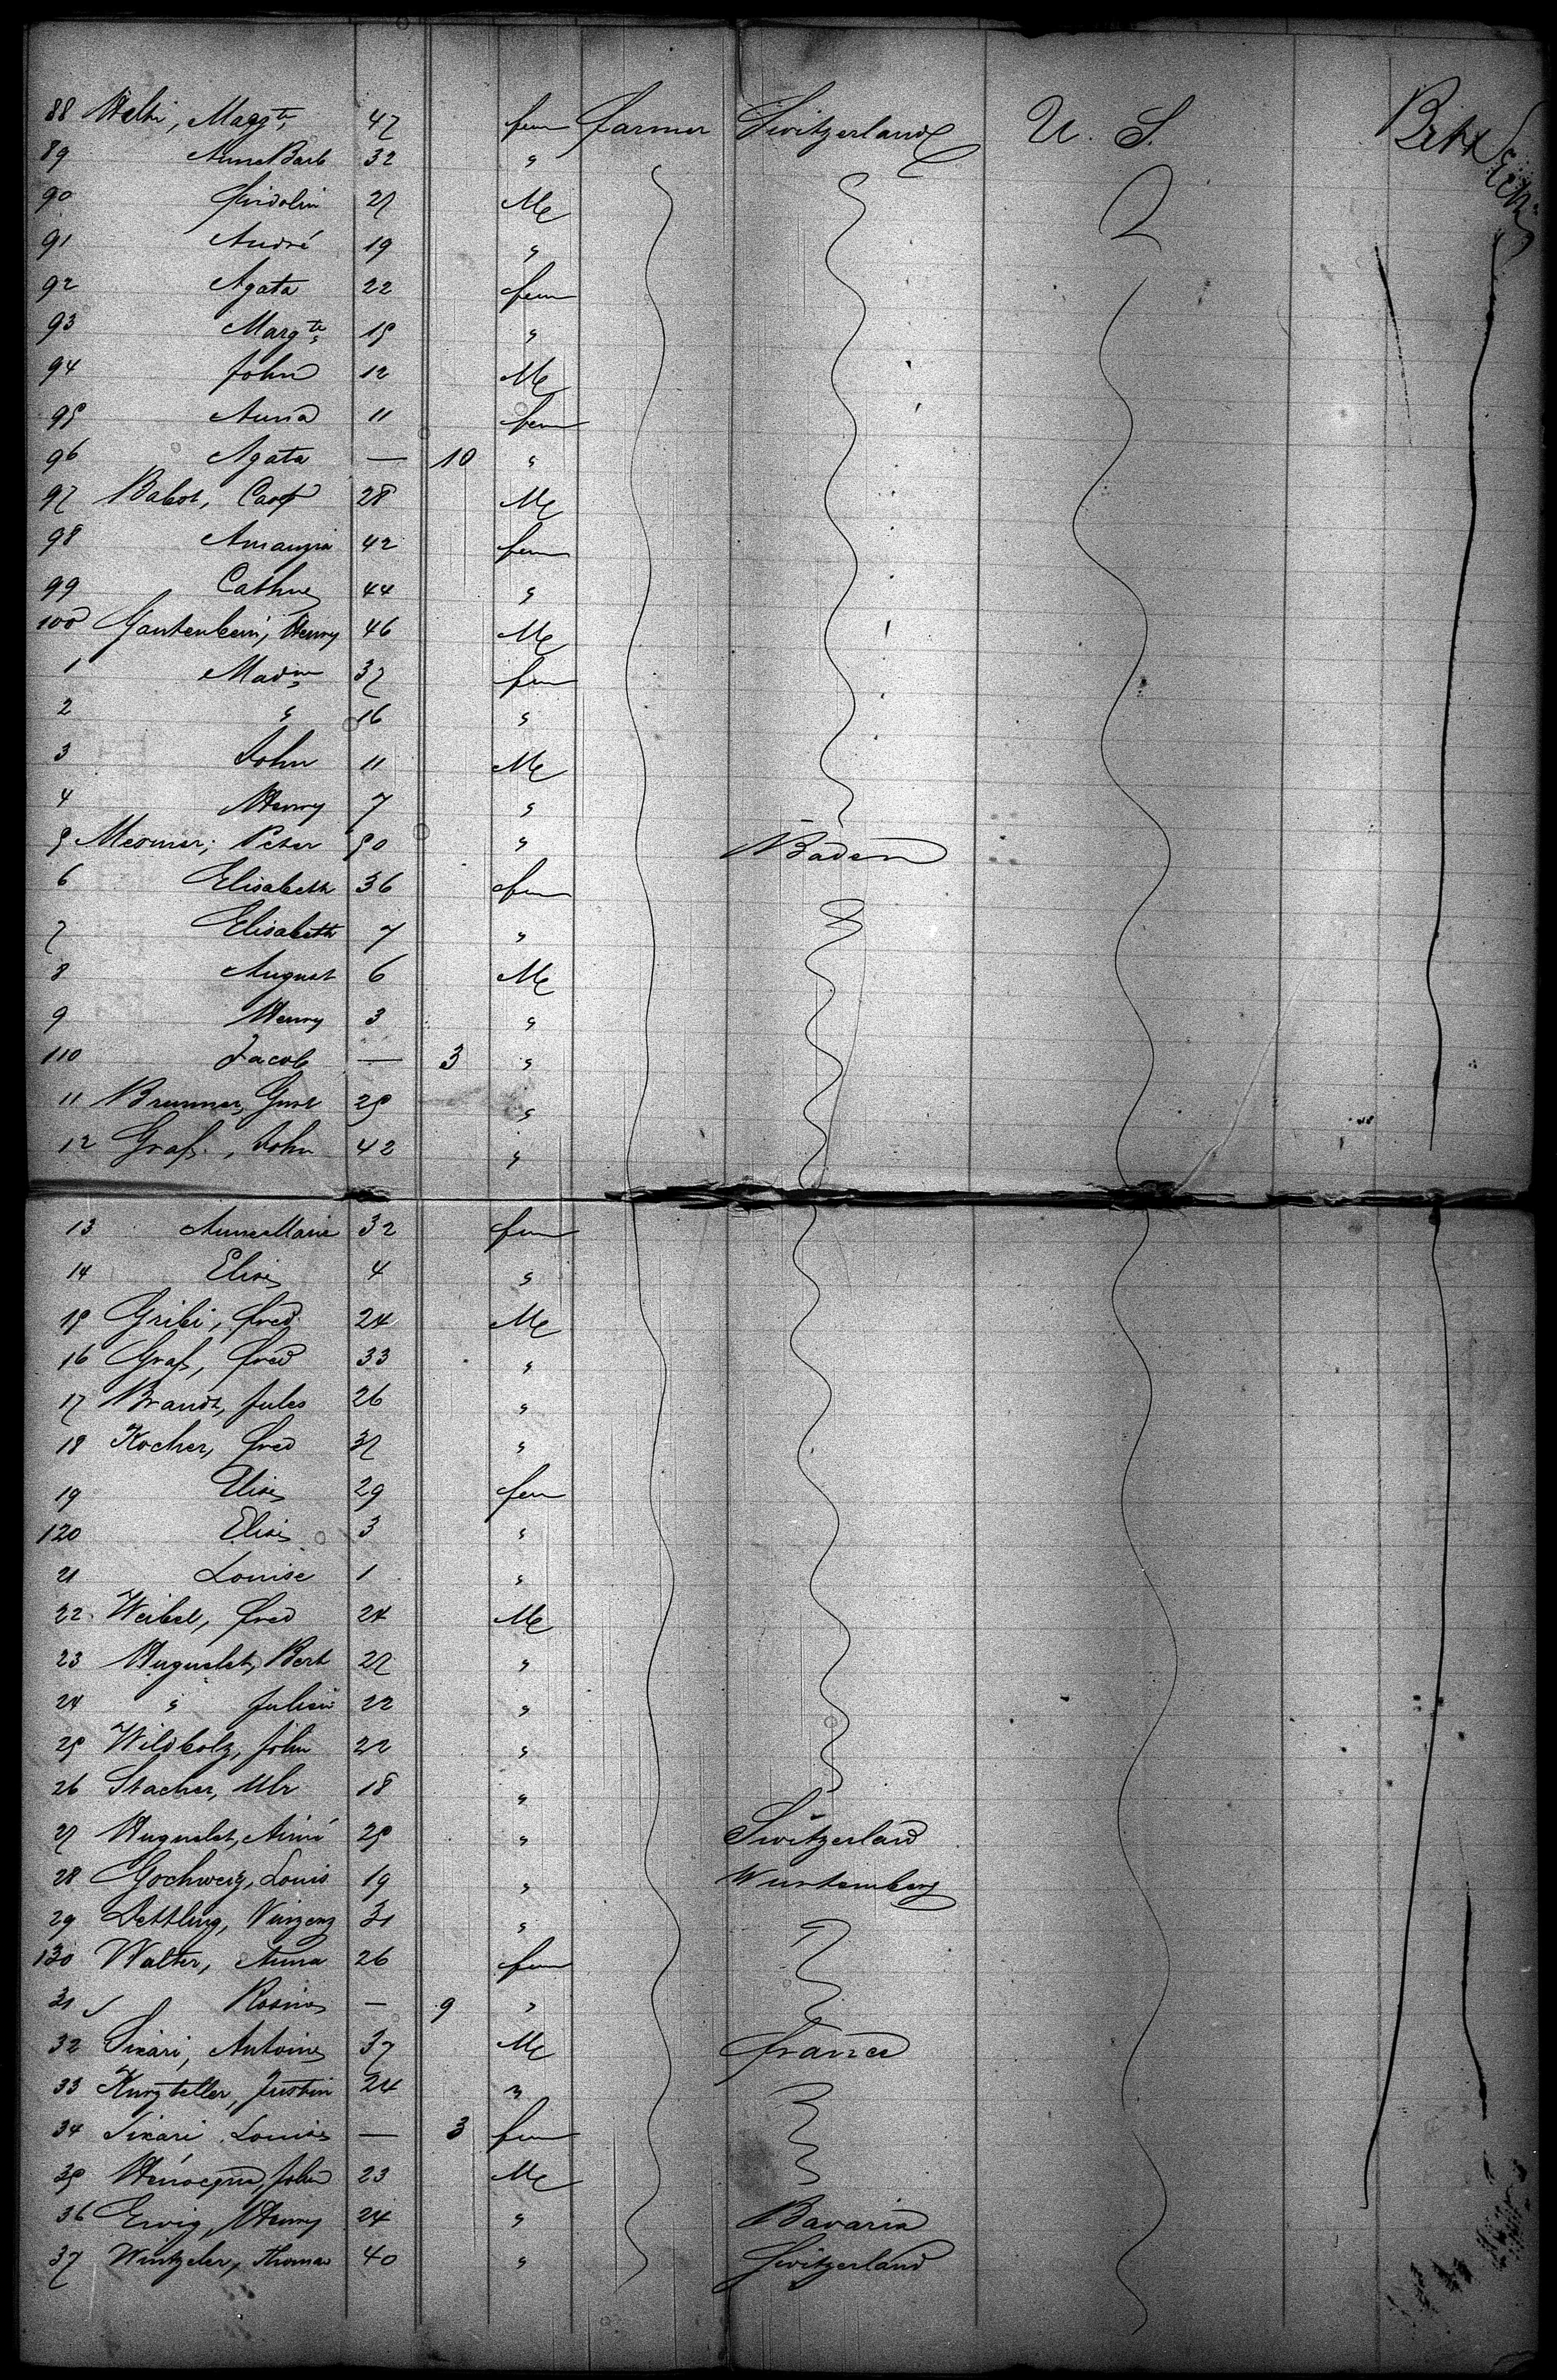 88 Welti, Margte 47 fem farmer Switzerland U. S.
89 Anna Barb 32 "
90 Fridolin 27 M
91 André 19 "
92 Agata 22 fem
93 Margte 15 "
94 John 12 M
95 Anna 11 fem
96 Agata — 10 "
97 Babst, 28 M
98 42 fem
99 Cathne 44 "
100 Gantenbein, Henry 46 M
1 Madne 37 fem
2 " 16 "
3 John 11 M
4 Henry 7 "
5 Mesmer, Peter 50 " Baden
6 Elisabeth 36 fem
7 Elisabeth 7 "
8 August 6 M
9 Henry 3 "
110 Jacob — 3 "
11 Brunner, Gust 25 "
12 Graf, John 42 "
13 Anna Maria 32 fem
14 Elise 4 "
15 Gribi, Fred 24 M
16 Graf, Fred 33 "
17 Brandt, Jules 26 "
18 Kocher, Fred 37 "
19 Elise 29 fem
120 Elise 3 "
21 Louise 1 "
22 Weibel, Fred 24 M
23 Huguelet, Bert 27 "
24 " Julien 22 "
25 Wildbolz, John 22 "
26 Stacher, Ulr 18 "
27 Huguelet, Aimé 25 " Switzerland
28 Gochweig, Louis 19 " Wurtemberg
29 Dettling, Vinzenz 31 "
130 Walter, Anna 26 fem
31 Rosina — 9 "
32 Sixari, Antoine 37 M France
33 Kurzteller, Justin 24 "
34 Sixari Louise — 3 fem
35 John 23 M
36 Ewig, Henry 24 " Bavaria
37 Wintzeler, Thomas 40 " Switzerland